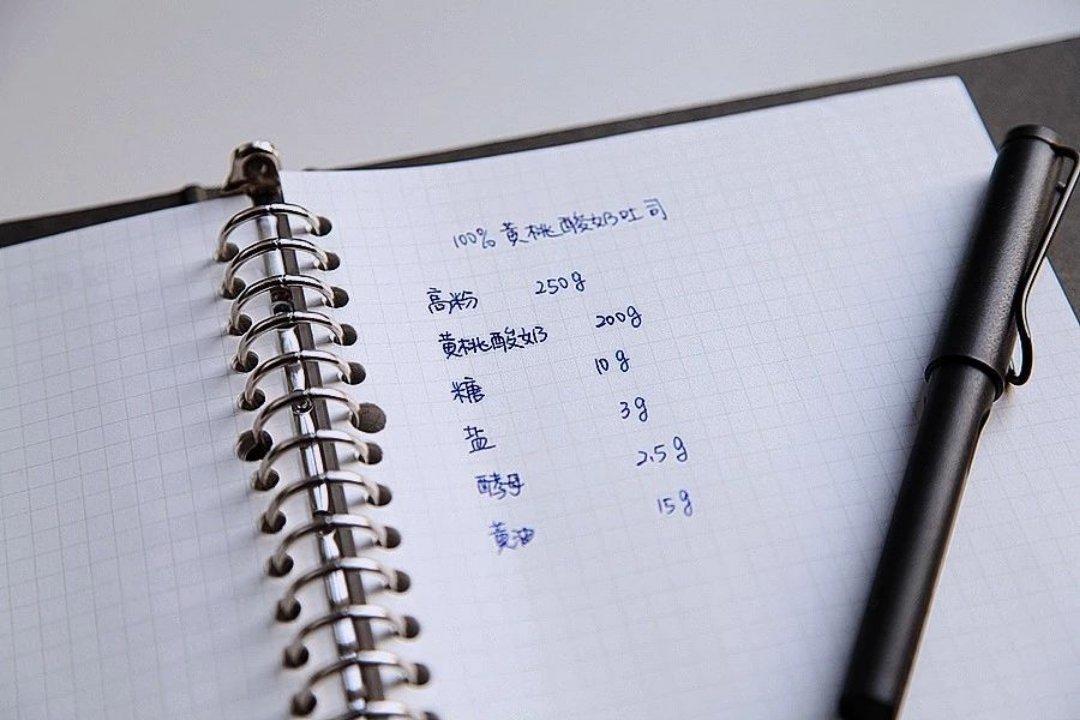 100% 黄桃酸奶吐司
高粉 250g
黄桃酸奶 200g
糖 10g
盐 3g
酵母 2.5g
黄油 15g